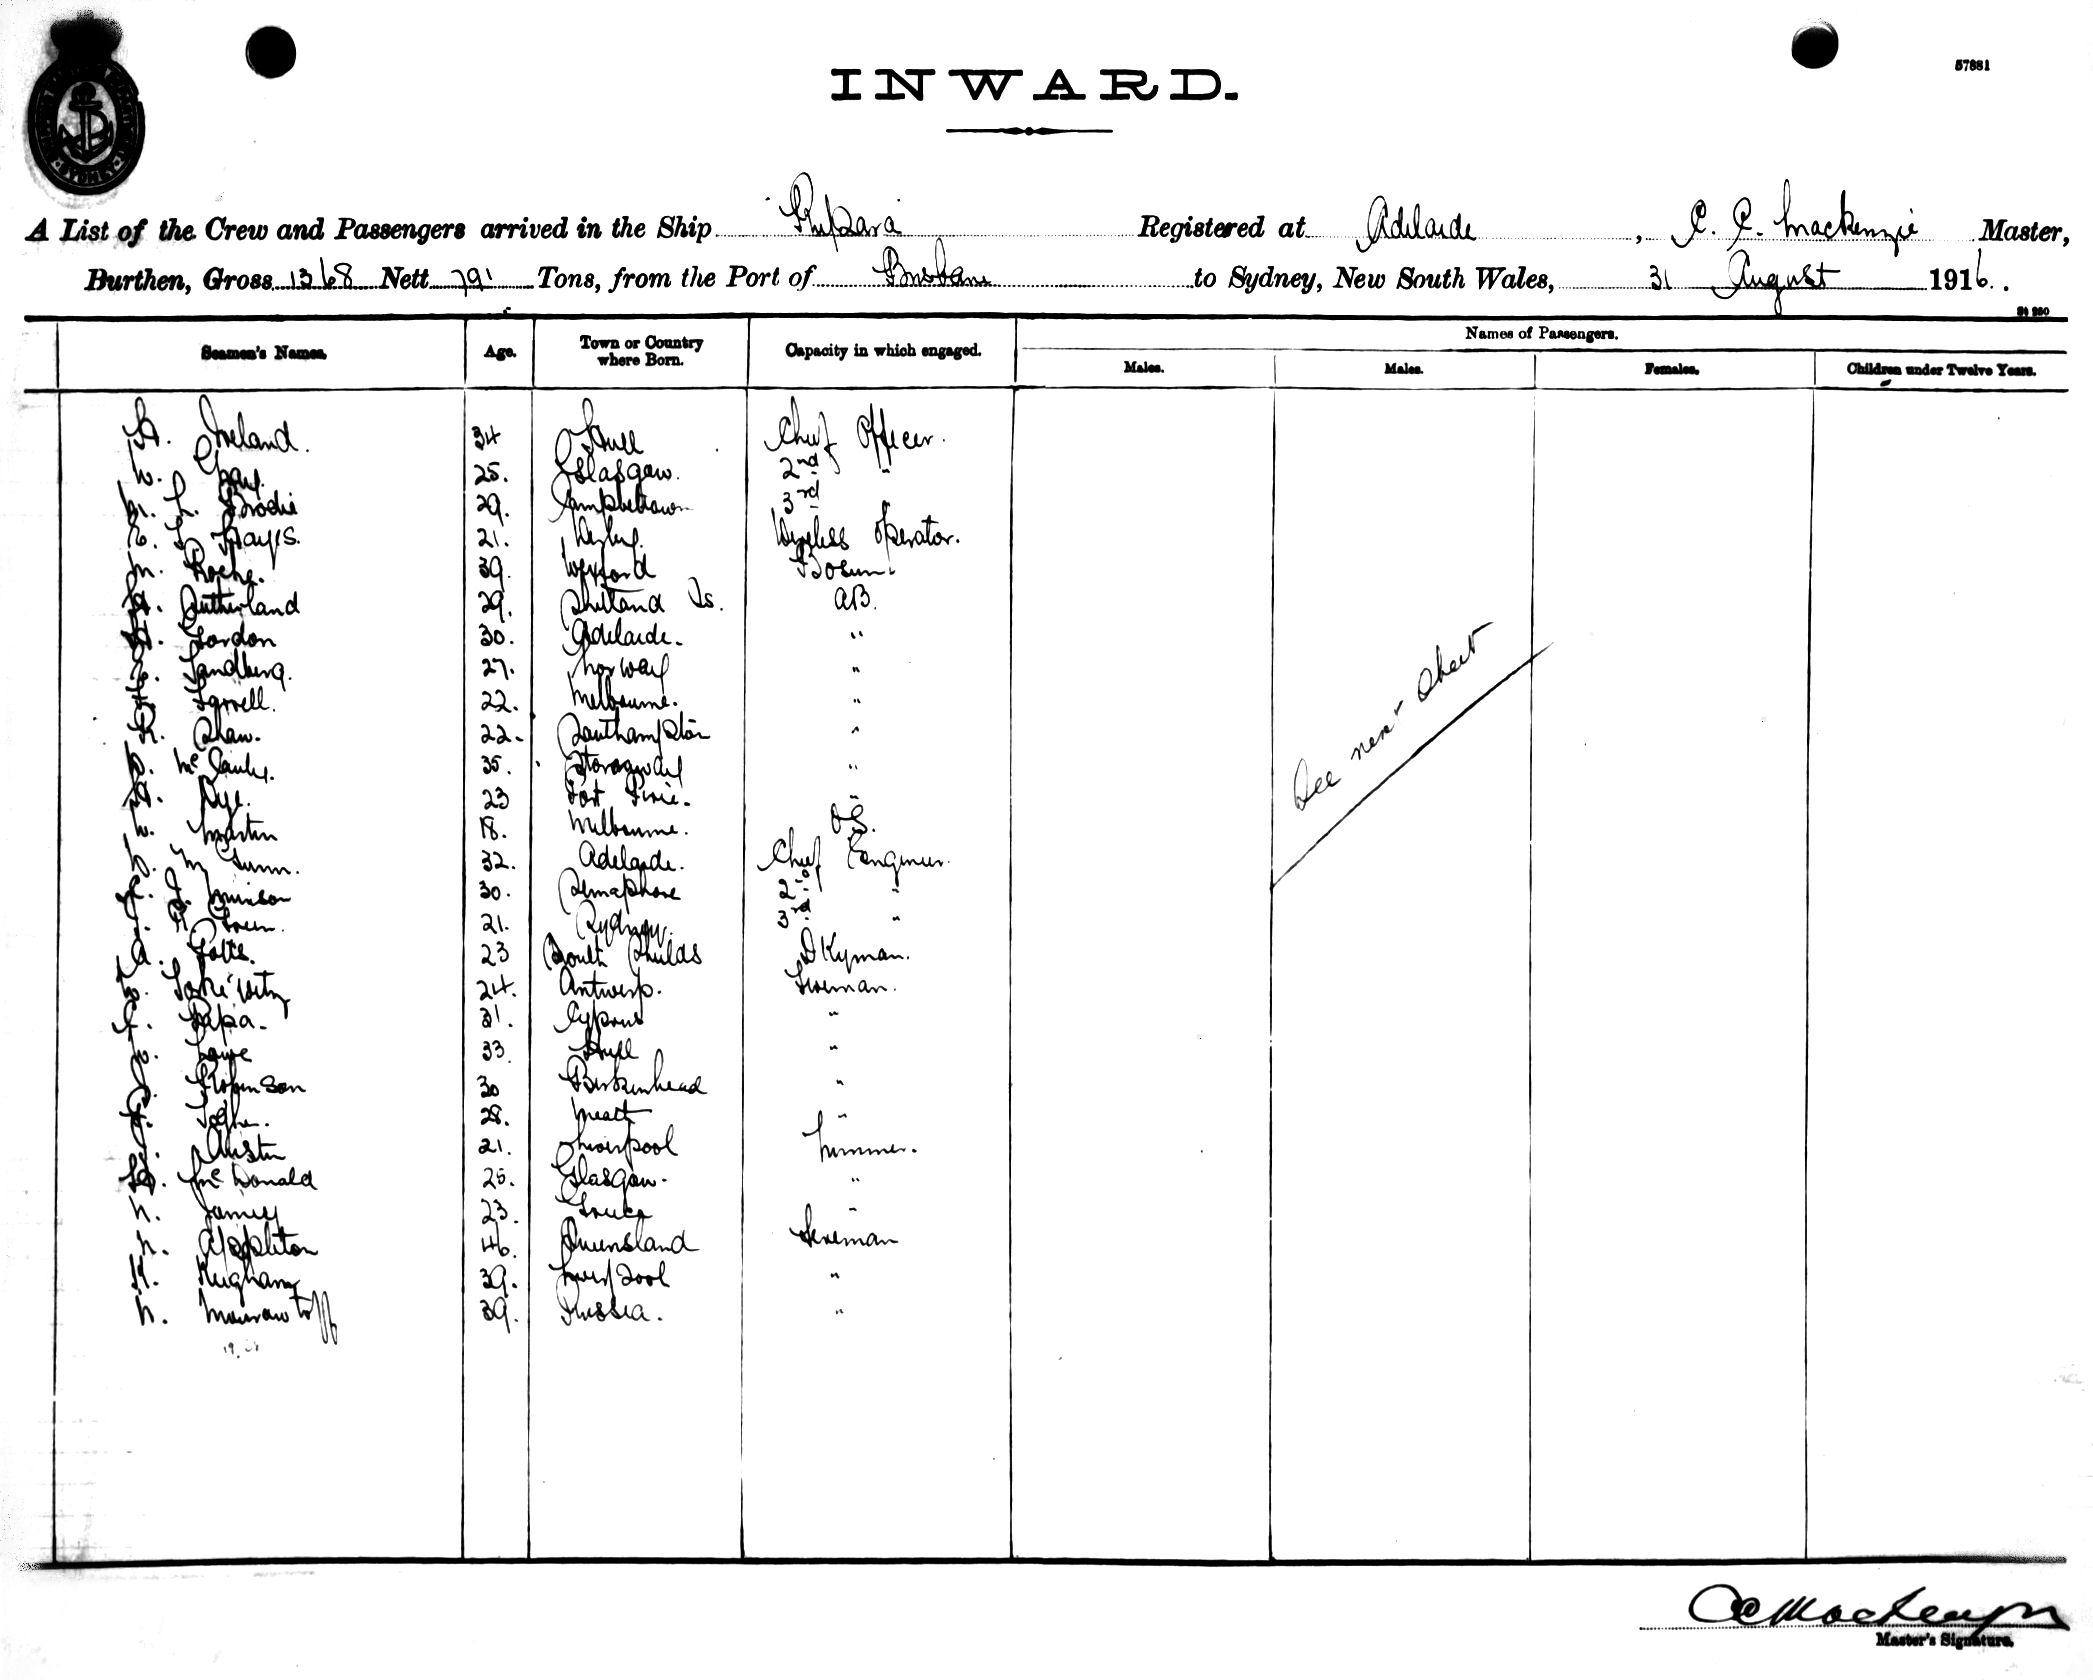 57881
INWARD.
SYDNEY
A List of the Crew and Passengers arrived in the Ship Registered at Adelaide, C. C. Mackenzie Master,
Burthen, Gross 1368 Nett 791 Tons, from the Port of Brisbane to Sydney, New South Wales, 31 August 1916.
Seamen's Names. Age. Town or Country where Born. Capacity in which engaged. Names of Passengers.
Males. Males. Females. Children under Twelve Years.
H. Ireland. 34 Hull Chief Officer.
W. Gray. 25. Glasgow. 2nd "
L. Brodie 29. Campbeltown 3rd
Hays. 21. Wireless Operator.
M. Roche. 39. Wexford Bosun
Sutherland 29. Shetland Is. AB.
Gordon 30. Adelaide. "
Sandberg. 27. Norway "
Farrell. 22. Melbourne. "
R. Shaw. 22. Southampton "
McCauley. 35. Stornaway "
Pye. 23 Port Pirie. "
W. Martin 18. Melbourne. OS.
Gunn. 32. Adelaide. Chief Engineer.
Munson 30. Semaphore 2nd "
Green. 21. Sydney. 3rd "
A. Potts. 23 South Shields Dkyman.
24. Antwerp. Fireman.
Papa. 31. Cyprus "
Lowe 33. Hull "
Robinson 30 Birkenhead "
28. Meath "
Austin 21. Liverpool Trimmer.
McDonald 25. Glasgow. "
James 23. Greece "
Appleton 46. Queensland Fireman
39. Liverpool "
39. Russia. "
See next sheet
CC Mackenzie
Master's Signature.